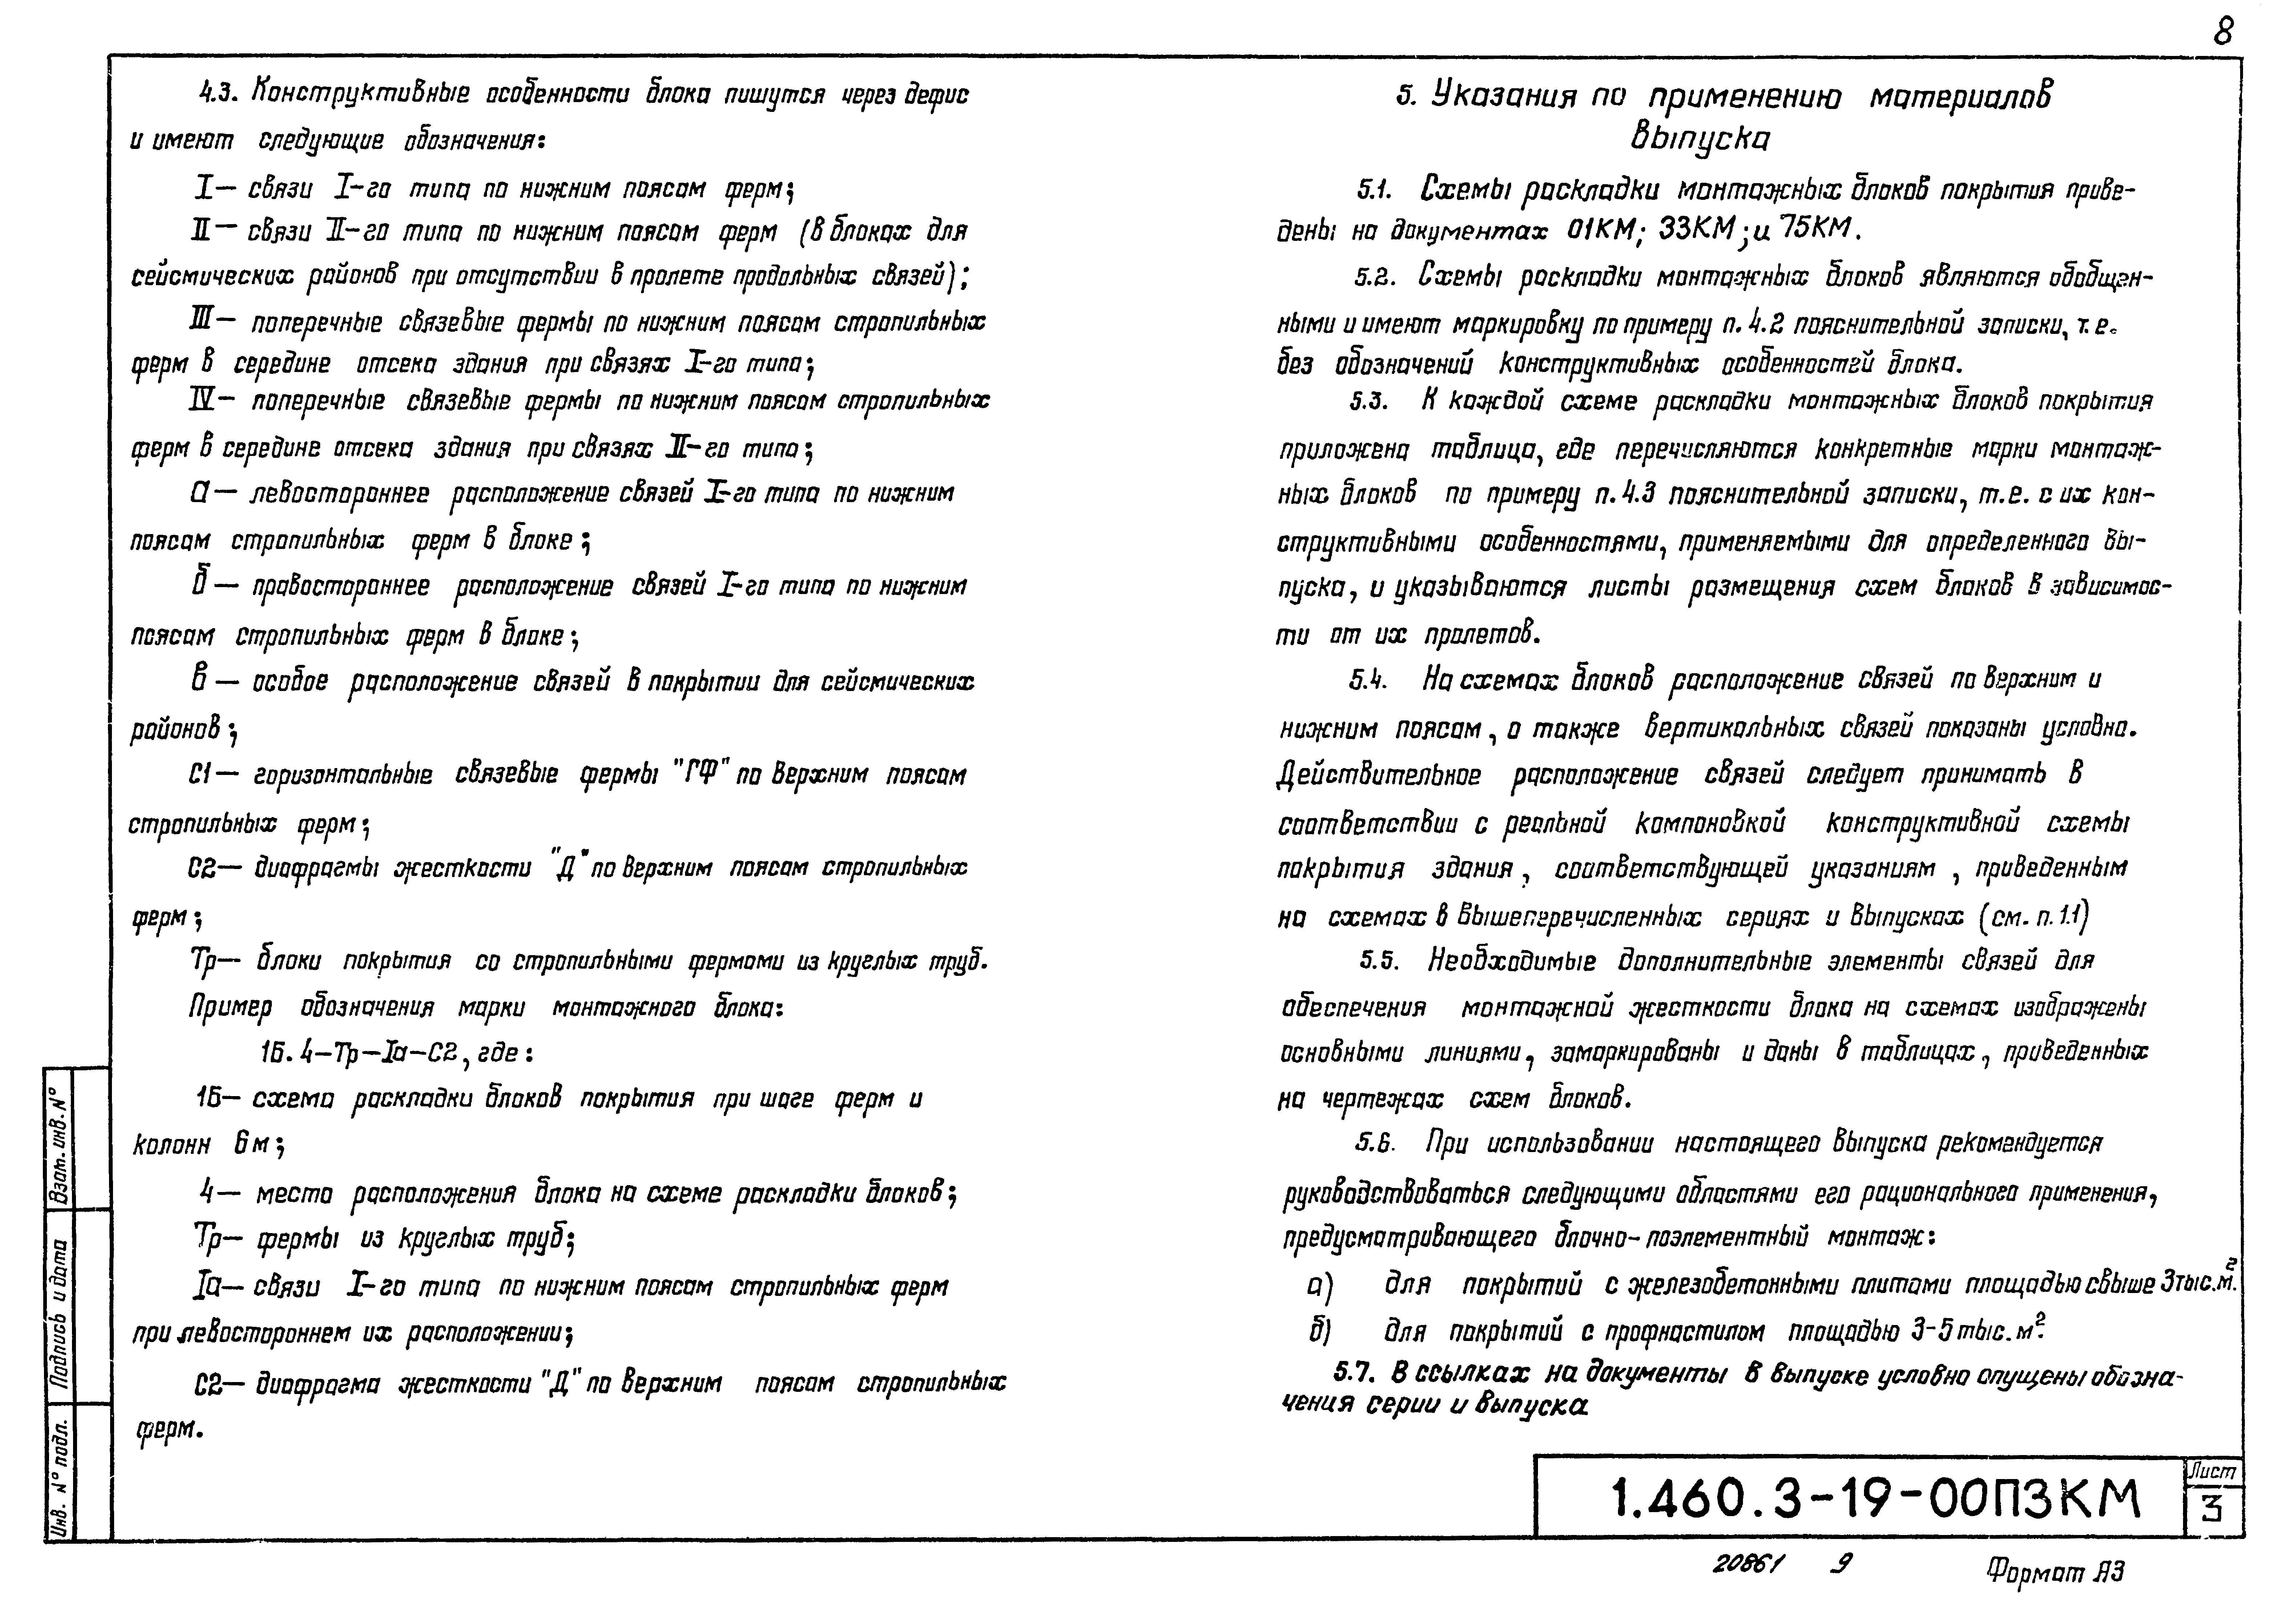 8
4.3. Конструктивные особенности блока пишутся через дефис
и имеют следующие обозначения:
I— связи I-го типа по нижним поясам ферм;
II— связи II-го типа по нижним поясам ферм (в блоках для
сейсмических районов при отсутствии в пролете продольных связей);
III— поперечные связевые фермы по нижним поясам стропильных
ферм в середине отсека здания при связях I-го типа;
IV— поперечные связевые фермы по нижним поясам стропильных
ферм в середине отсека здания при связях II-го типа;
а— левостороннее расположение связей I-го типа по нижним
поясам стропильных ферм в блоке;
б— правостороннее расположение связей I-го типа по нижним
поясам стропильных ферм в блоке;
в— особое расположение связей в покрытии для сейсмических
районов;
С1— горизонтальные связевые фермы "ГФ" по верхним поясам
стропильных ферм;
С2— диафрагмы жесткости "Д" по верхним поясам стропильных
ферм;
Тр— блоки покрытия со стропильными фермами из круглых труб.
Пример обозначения марки монтажного блока:
1Б.4-Тр-Iа-С2, где:
1Б— схема раскладки блоков покрытия при шаге ферм и
колонн 6м;
4— место расположения блока на схеме раскладки блоков;
Тр— фермы из круглых труб;
Iа— связи I-го типа по нижним поясам стропильных ферм
при левостороннем их расположении;
С2— диафрагма жесткости "Д" по верхним поясам стропильных
ферм.
5. Указания по применению материалов
выпуска
5.1. Схемы раскладки монтажных блоков покрытия приве-
дены на документах 01КМ; 33КМ; и 75КМ.
5.2. Схемы раскладки монтажных блоков являются обобщен-
ными и имеют маркировку по примеру п.4.2 пояснительной записки, т.е.
без обозначений конструктивных особенностей блока.
5.3. К каждой схеме раскладки монтажных блоков покрытия
приложена таблица, где перечисляются конкретные марки монтаж-
ных блоков по примеру п.4.3 пояснительной записки, т.е. с их кон-
структивными особенностями, применяемыми для определенного вы-
пуска, и указываются листы размещения схем блоков в зависимос-
ти от их пролетов.
5.4. На схемах блоков расположение связей по верхним и
нижним поясам, а также вертикальных связей показаны условно.
Действительное расположение связей следует принимать в
соответствии с реальной компоновкой конструктивной схемы
покрытия здания, соответствующей указаниям, приведенным
на схемах в вышеперечисленных сериях и выпусках (см. п.1.1)
5.5. Необходимые дополнительные элементы связей для
обеспечения монтажной жесткости блока на схемах изображены
основными линиями, замаркированы и даны в таблицах, приведенных
на чертежах схем блоков.
5.6. При использовании настоящего выпуска рекомендуется
руководствоваться следующими областями его рационального применения,
предусматривающего блочно-поэлементный монтаж:
а) для покрытий с железобетонными плитами площадью свыше 3тыс.м².
б) для покрытий с профнастилом площадью 3-5тыс.м².
5.7. В ссылках на документы в выпуске условно опущены обозна-
чения серии и выпуска
Взам. инв. N°
Подпись и дата
Инв. N° подл.
1.460.3-19-00ПЗКМ
Лист
3
20861 9
Формат А3